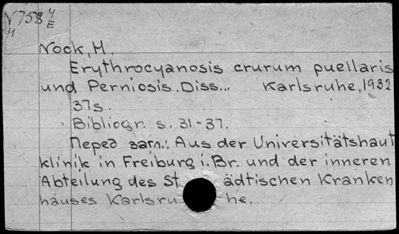 N758 4/E
H
Nock, H.
Erythrocyanosis crurum puellaris
und Perniosis. Diss... Karlsruhe, 1932
37s.
Bibliogr. s. 31-37.
Перед загл.: Aus der Universitätshaut
klinik in Freiburg i. Br. und der inneren
Abteilung des St ädtischen Kranken
hauses Karlsru he.